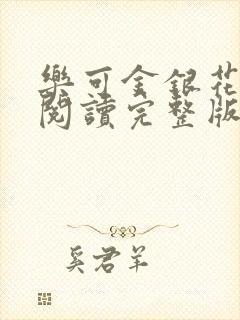 樂可金銀花
閱讀完整版
奚君羊